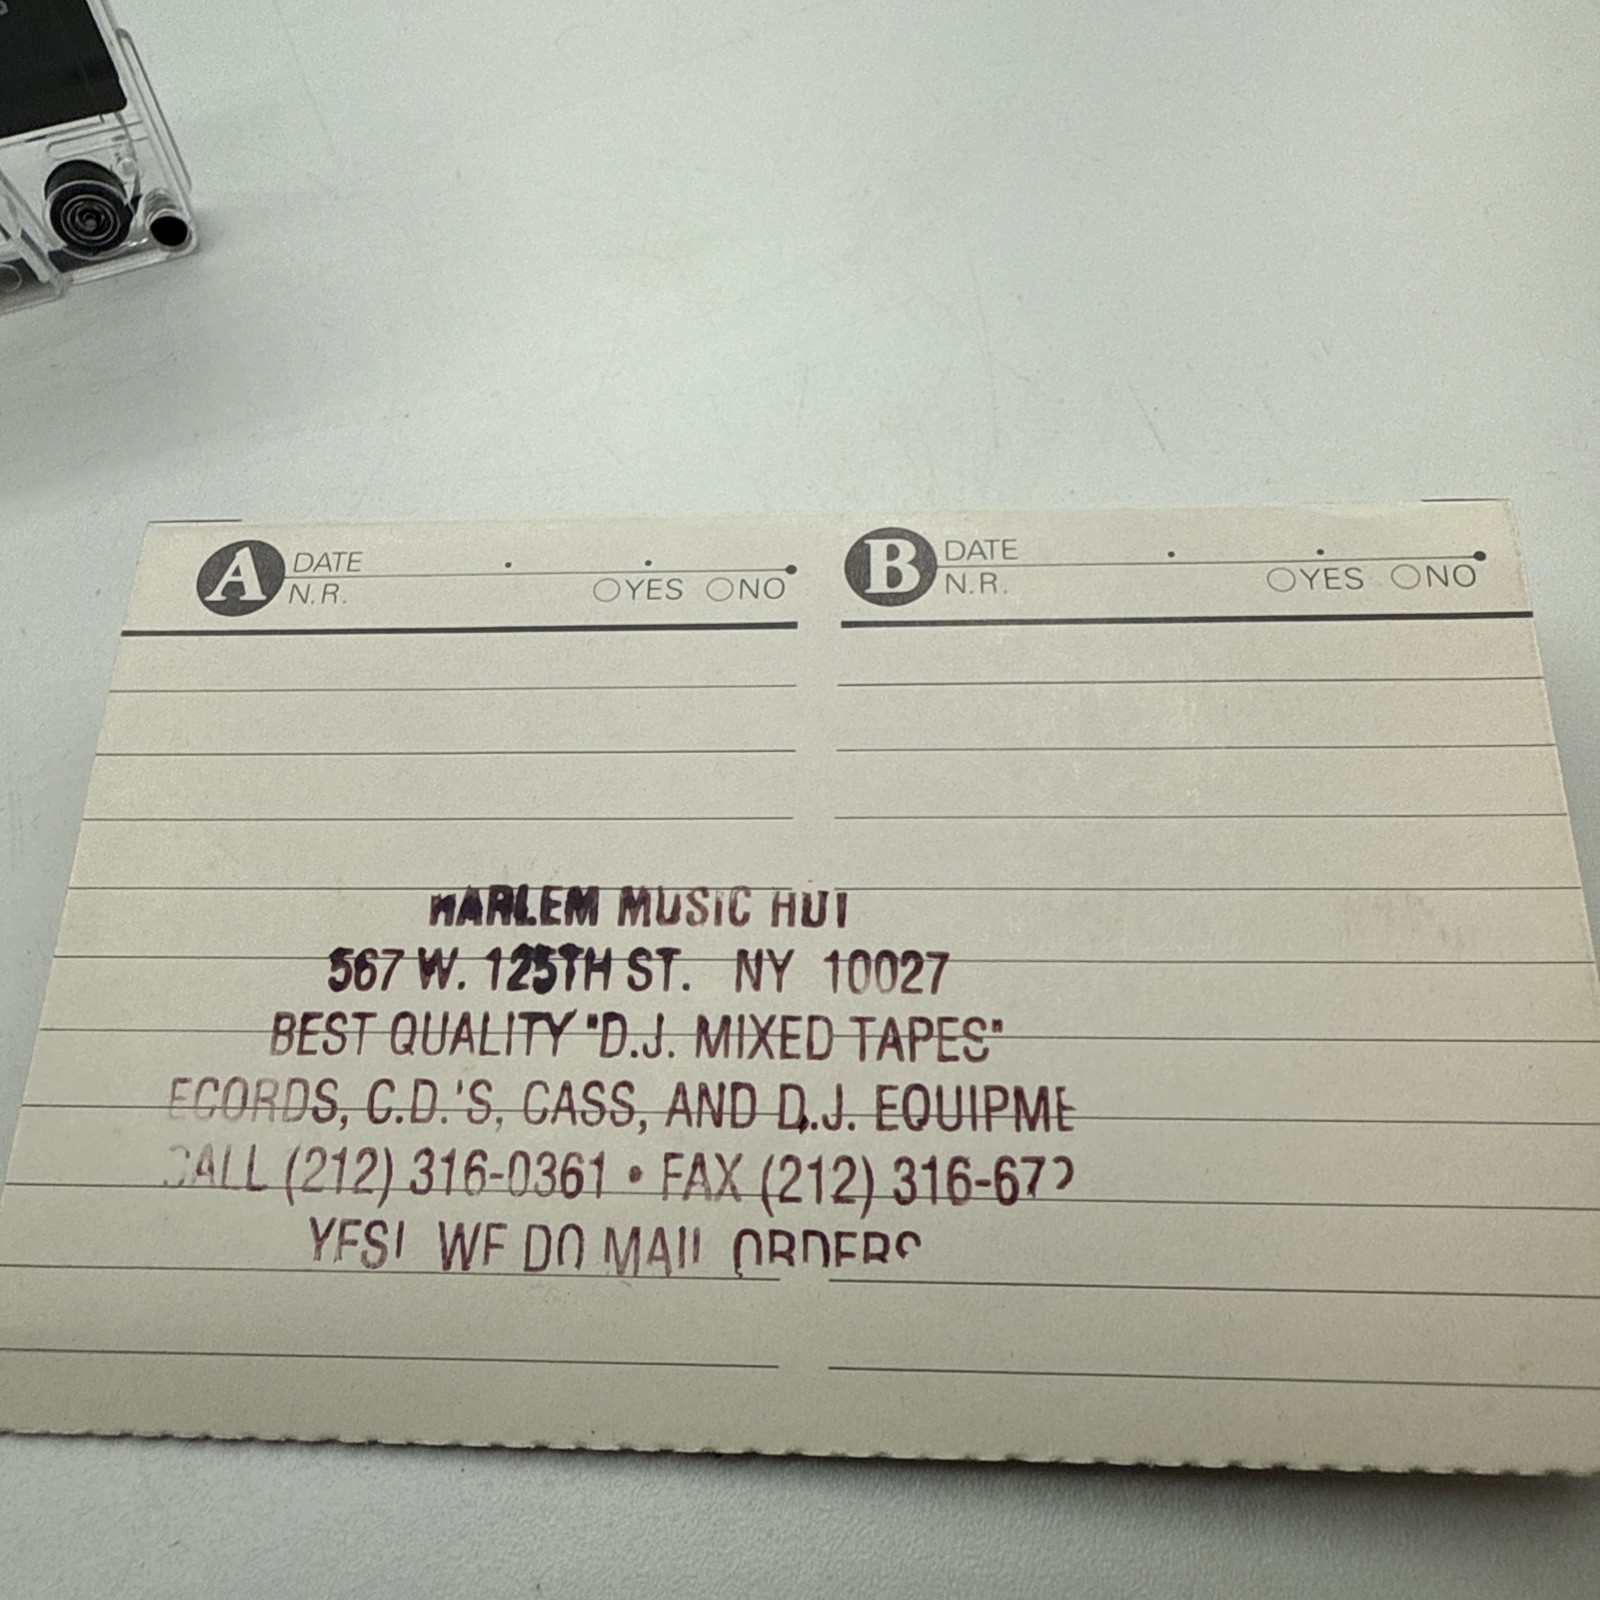 A DATE
N.R. YES NO
B DATE
N.R. YES NO
HARLEM MUSIC HUT
567 W. 125TH ST. NY 10027
BEST QUALITY "D.J. MIXED TAPES"
ECORDS, C.D.'S, CASS, AND D.J. EQUIPME
CALL (212) 316-0361 • FAX (212) 316-67
YES! WE DO MAIL ORDERS